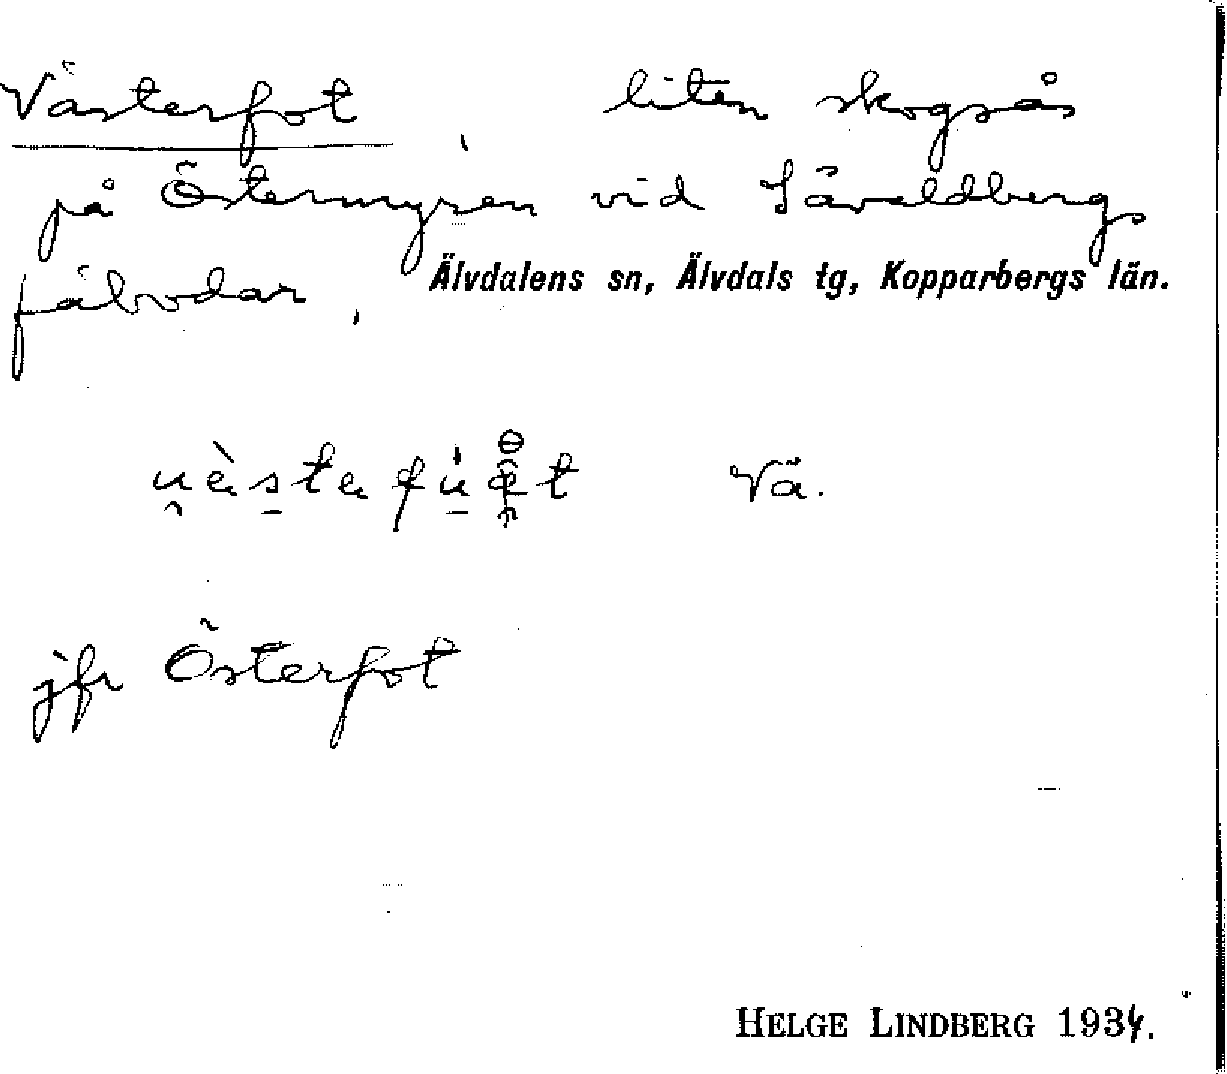 Västerfot, liten skogsås
på Östermyren vid Sävaldbergs
fäbodar,
Älvdalens sn, Älvdals tg, Kopparbergs län.
Vä.
jfr Österfot
HELGE LINDBERG 1934.